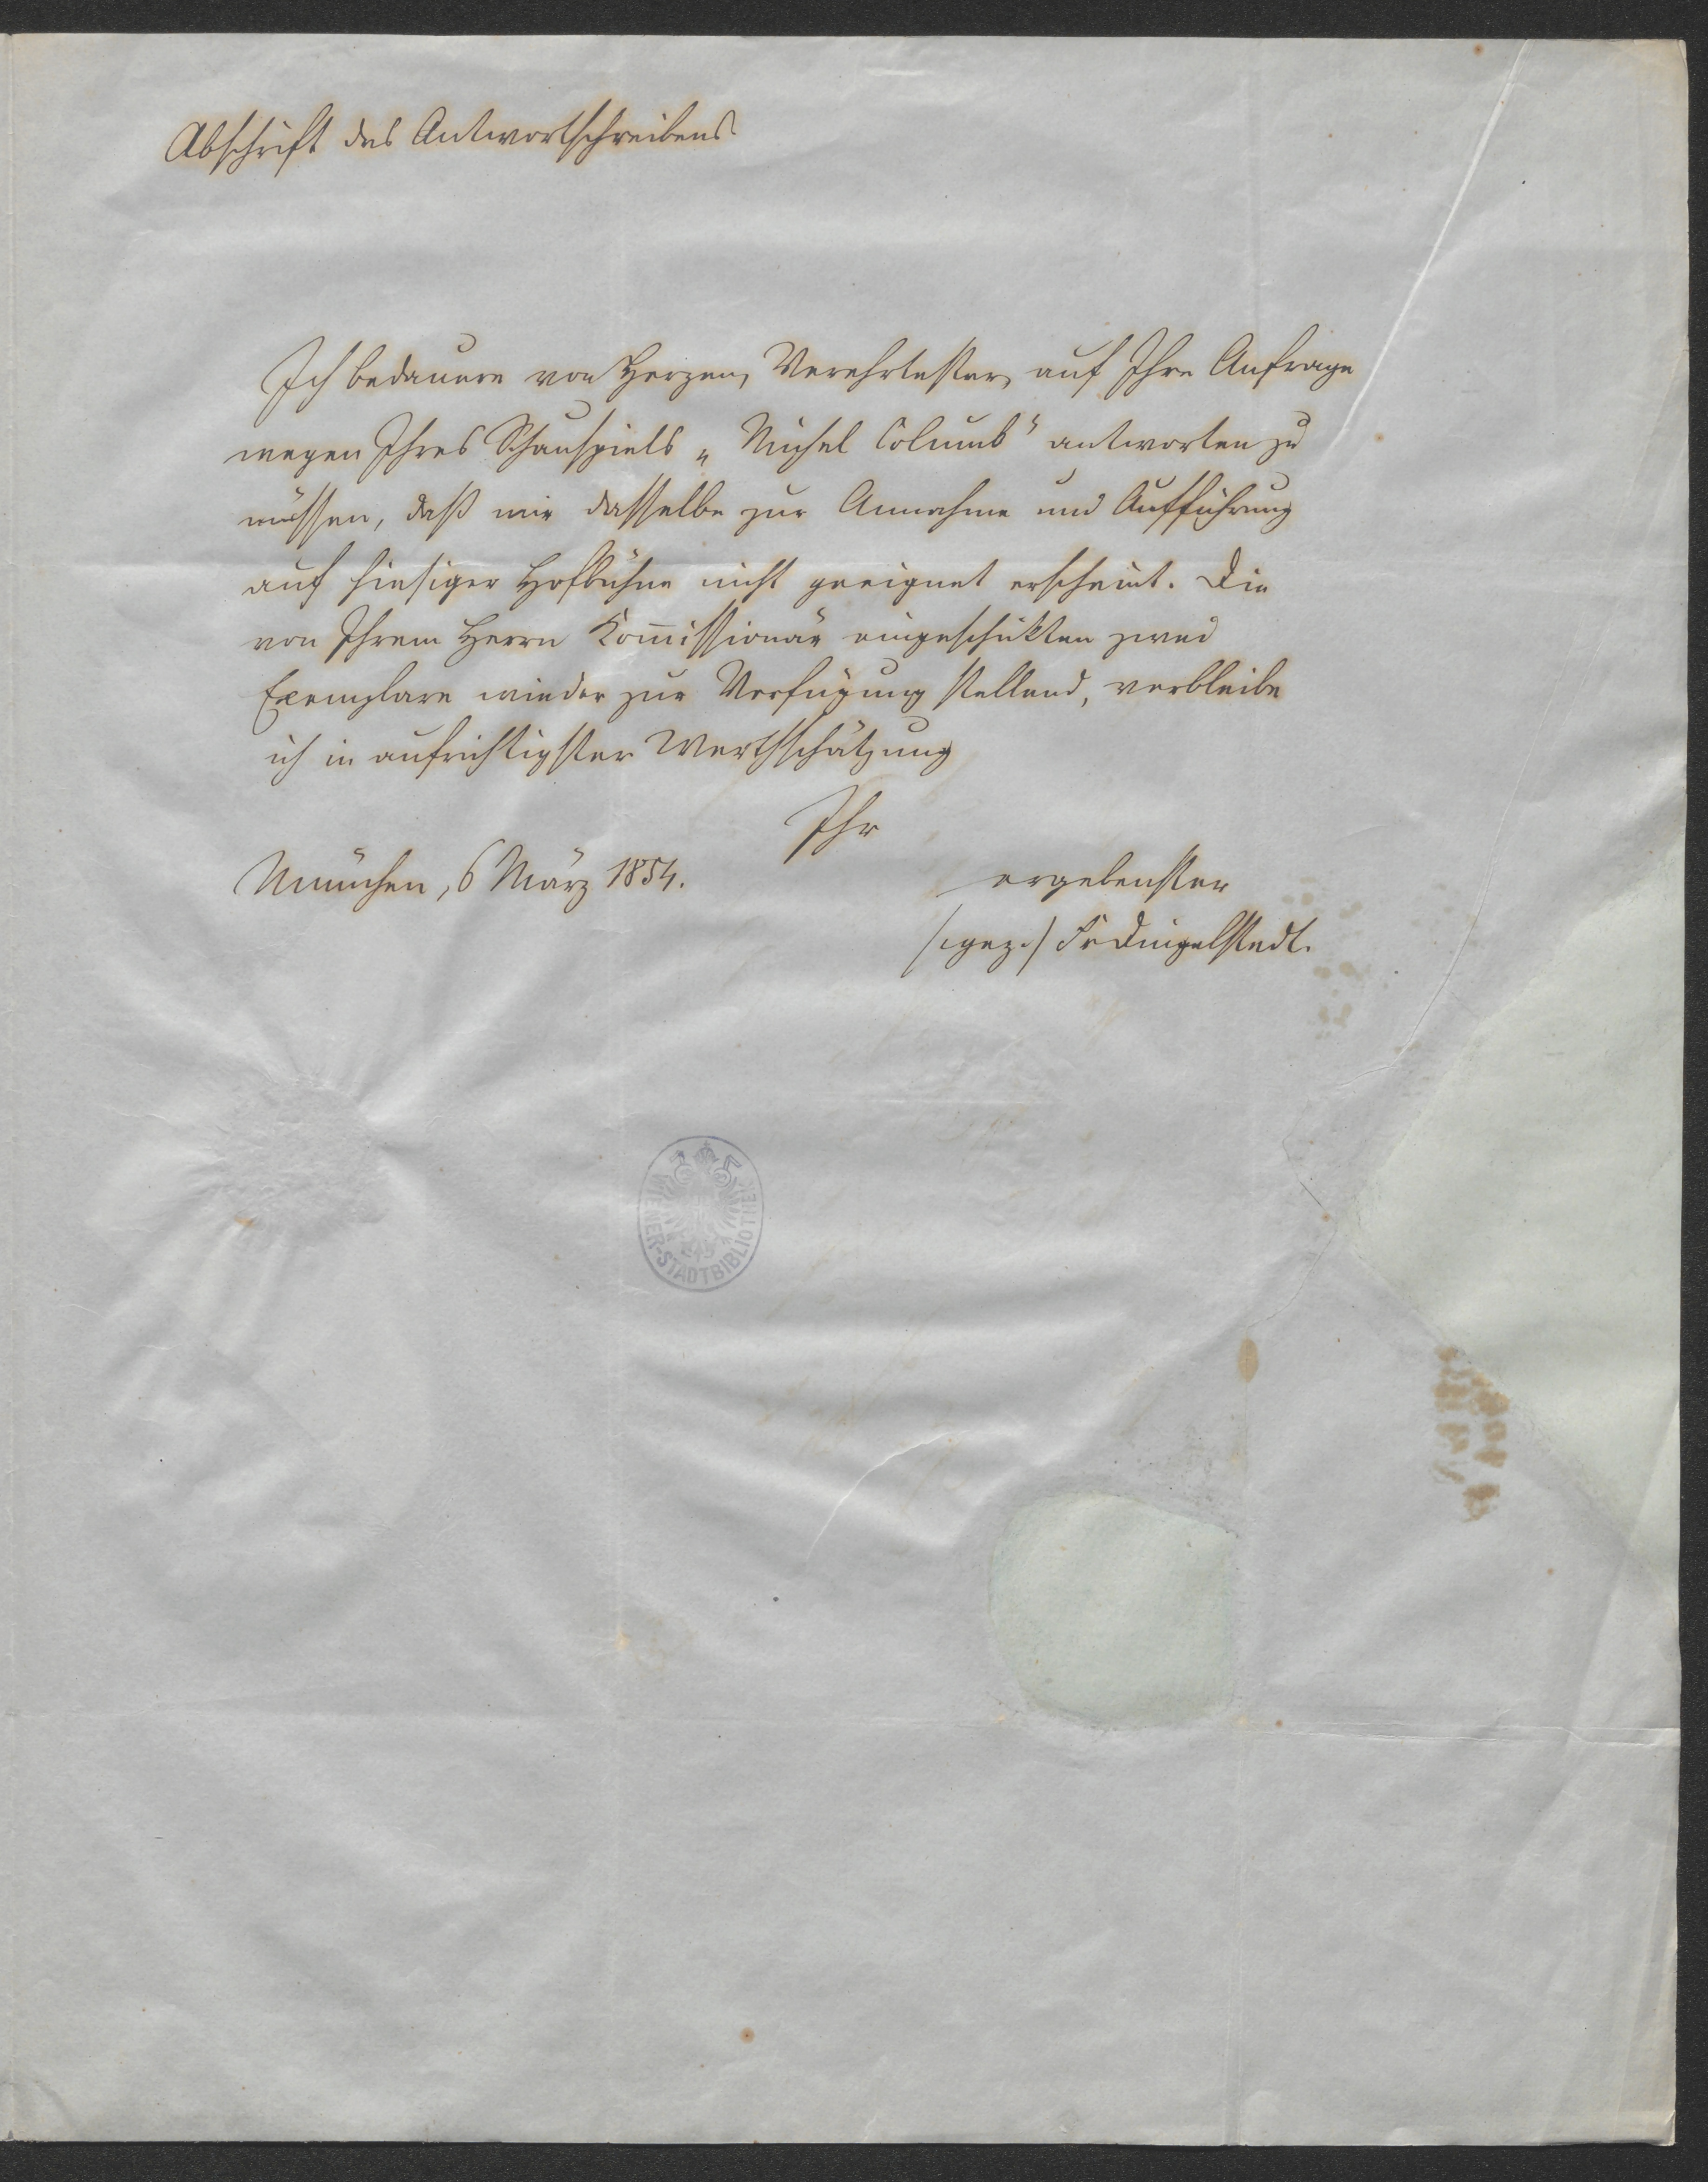 Abschrift des Antwortschreibens
Ich bedauere von Herzen, Verehrtester, auf Ihre Anfrage
wegen Ihres Schauspiels „Michel Columb" antworten zu
müssen, daß mir dasselbe zur Annahme und Aufführung
auf hiesiger Hofbühne nicht geeignet erscheint. Die
von Ihrem Herrn Kom̅issionär eingeschickten zwei
Exemplare wieder zur Verfügung stellend, verbleibe
ich in aufrichtigster Werthschätzung
Ihr
München, 6 März 1854.
ergebenster
/:gez:/ Fr Dingelstedt.
WIENER-STADTBIBLIOTHEK